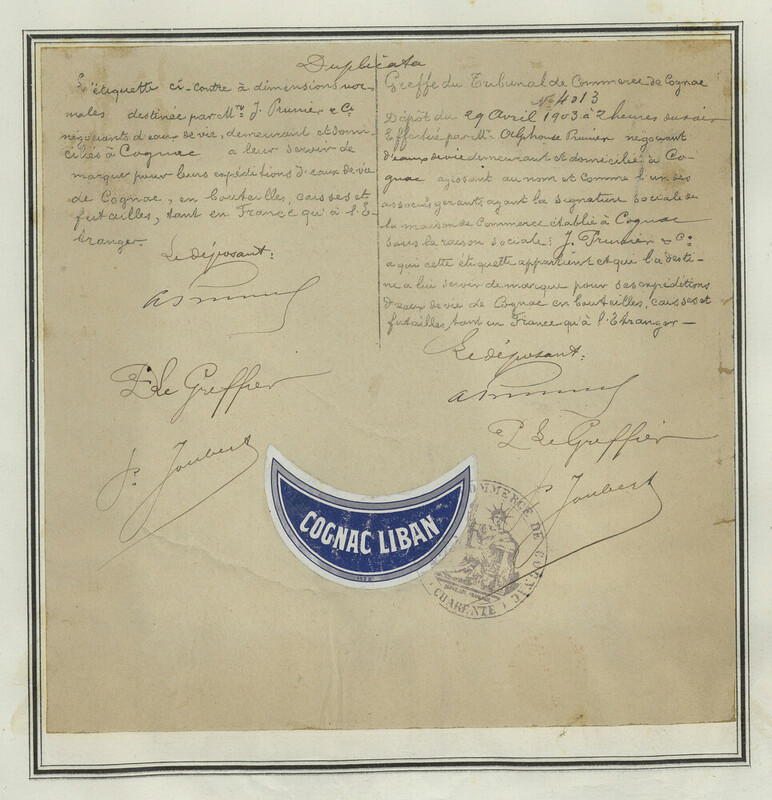 Duplicata
L'étiquette ci-contre à dimensions nor-
males destinée par Mrs J. Prunier & Cie
négociants d'eaux de vie, demeurant et domi-
ciliés à Cognac a leur servir de
marque pour leurs expéditions d'eaux de vie
de Cognac, en bouteilles, caisses et
futailles, tant en France qu'à l'É-
tranger.
Le déposant:
P. Le Greffier
P. Joubert
Greffe du Tribunal de Commerce de Cognac
No 4013
Dépôt du 29 Avril 1903 à 2 heures du soir
Effectué par Mr Alphonse Prunier négociant
d'eaux de vie demeurant et domicilié à Co-
gnac agissant au nom et comme l'un des
associés gerants ayant la signature sociale de
la maison de Commerce établie à Cognac
sous la raison sociale: J. Prunier & Cie
a qui cette étiquette appartient et qui l'a desti-
née a lui servir de marque pour ses expéditions
d'eaux de vie de Cognac en bouteilles, caisses et
futailles, tant en France qu'à l'Etranger —
Le déposant:
P. Le Greffier
P. Joubert
COGNAC LIBAN
COMMERCE DE COGNAC
CHARENTE